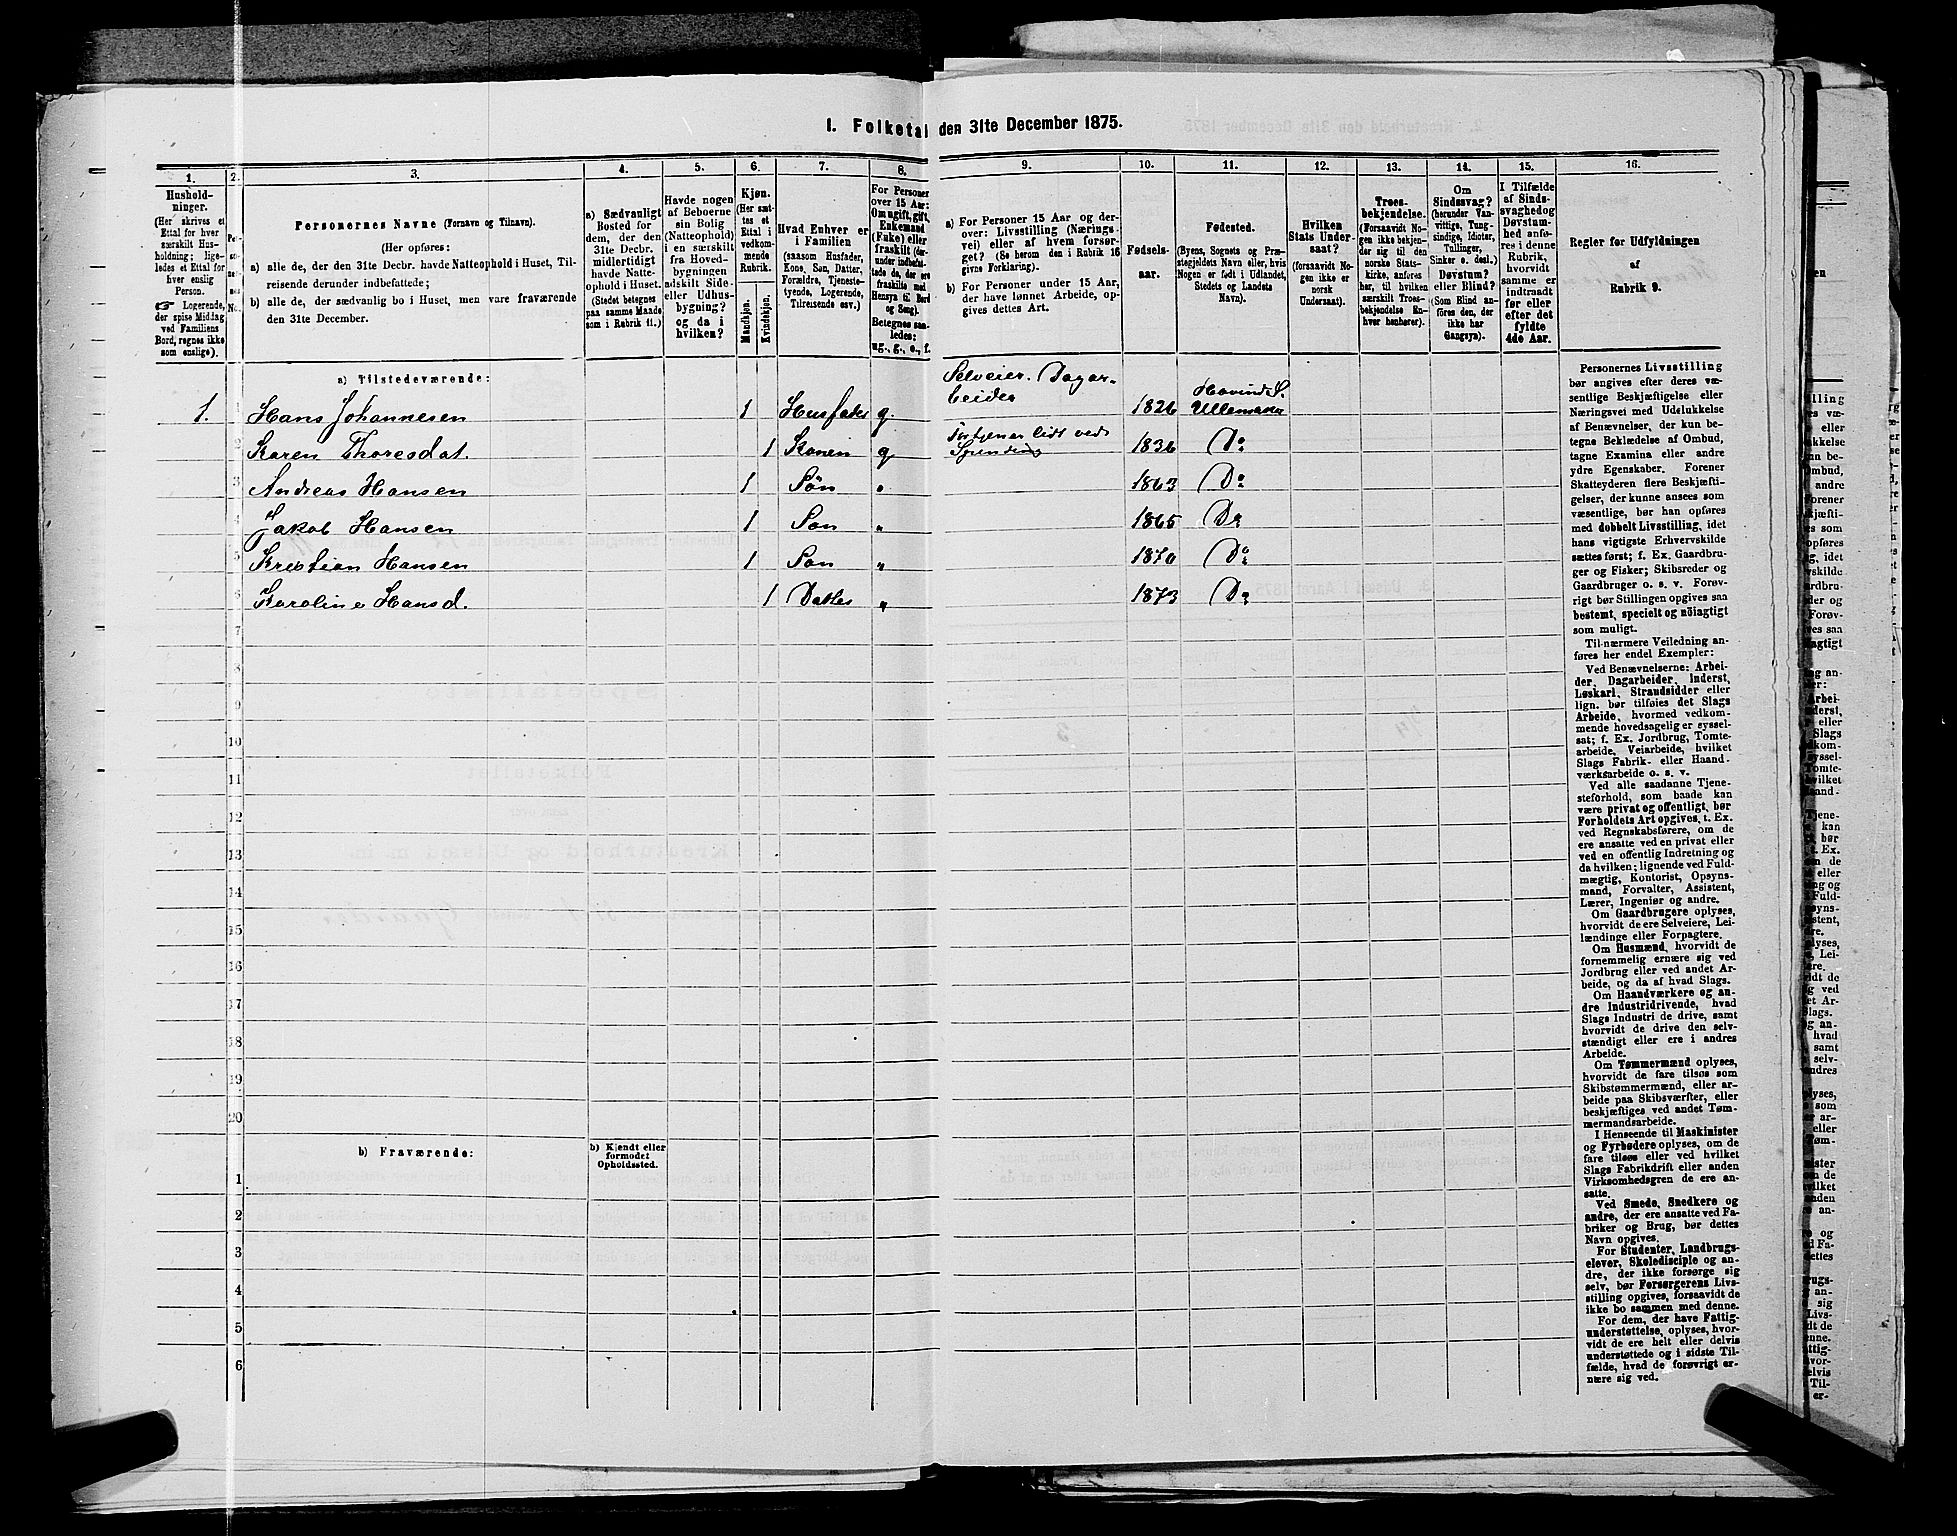 1. Folketal den 31te December 1875.
1.
2.
3.
4.
5.
6.
7.
8.
9.
10.
11.
12.
13.
14.
15.
16.
Hushold-
ninger.
(Her skrives et
Ettal for hver
særskilt Hus-
holdning; lige-
ledes et Ettal for
hver enslig
Person.
☞ Logerende,
der spise Middag
ved Familiens
Bord, regnes ikke
som enslige).
Per-
so-
ner-
nes
No.
Personernes Navne (Fornavn og Tilnavn).
(Her opføres:
a) alle de, der den 31te Decbr. havde Natteophold i Huset, Til-
reisende derunder indbefattede;
b) alle de, der sædvanlig bo i Huset, men vare fraværende
den 31te December.
a) Sædvanligt
Bosted for
dem, der den
31te Decbr.
midlertidigt
havde Natte-
ophold i Huset.
(Stedet betegnes
paa samme Maade
som i Rubrik 11.)
Havde nogen
af Beboerne
sin Bolig
(Natteophold)
i en særskilt
fra Hoved-
bygningen
adskilt Side-
eller Udhus-
bygning?
og da i
hvilken?
Kjøn.
(Her sæt-
tes et
Ettal i
vedkom-
mende
Rubrik.
Mandkjøn.
Kvindekjøn.
Hvad Enhver er
i Familien
(saasom Husfader,
Kone, Søn, Datter,
Forældre, Tjeneste-
tyende, Logerende,
Tilreisende osv.)
For Personer
over 15 Aar:
Om ugift, gift,
Enkemand
(Enke) eller
fraskilt (der-
under indbefat-
tede de, der ere
fraskilte med
Hensyn til Bord
og Seng).
Betegnes saa-
ledes:
ug., g., e., f.
a) For Personer 15 Aar og der-
over: Livsstilling (Nærings-
vei) eller af hvem forsør-
get? (Se herom den i Rubrik 16
givne Forklaring).
b) For Personer under 15 Aar,
der have lønnet Arbeide, op-
gives dettes Art.
Fødsels-
aar.
Fødested.
(Byens, Sognets og Præ-
stegjeldets Navn eller, hvis
Nogen er født i Udlandet,
Stedets og Landets
Navn).
Hvilken
Stats Under-
saat?
(forsaavidt No-
gen ikke er
norsk
Undersaat).
Troes-
bekjendelse.
(Forsaavidt No-
gen ikke bekjen-
der sig til den
norske Stats-
kirke, anføres
her, til hvilken
særskilt Troes-
bekjendelse En-
hver henhører).
Om
Sindssvag?
(herunder Van-
vittige, Tung-
sindige, Idioter,
Tullinger,
Sinker o. desl.)
Døvstum?
eller Blind?
(Som Blind an-
føres den, der
ikke har
Gangsyn).
I Tilfælde
af Sinds-
svaghed og
Døvstum-
hed anfø-
res i denne
Rubrik,
hvorvidt
samme er
indtraadt
før eller
efter det
fyldte
4de Aar.
Regler for Udfyldningen
af
Rubrik 9.
a) Tilstedeværende:
1. 1 Hans Johannesen 1 Husfader g. Selveier. Dagar-
beider 1826 Hovind S. Ullensaker
2 Karen Thoresdat. 1 Konen g. Fortjener lidt ved
Spinding 1836 Do
3 Andreas Hansen 1 Søn „ 1863 Do
4 Jakob Hansen 1 Søn „ 1865 Do
5 Kristian Hansen 1 Søn „ 1870 Do
6 Karoline Hansd. 1 Datter „ 1873 Do
7
8
9
10
11
12
13
14
15
16
17
18
19
20
b) Fraværende:
b) Kjendt eller
formodet
Opholdssted.
1
2
3
4
5
6
Personernes Livsstilling
bør angives efter deres væ-
sentlige Beskjæftigelse eller
Næringsvei med Udelukkelse
af Benævnelser, der kun be-
tegne Beklædelse af Ombud,
tagne Examina eller andre
ydre Egenskaber. Forener
Skatteyderen flere Beskjæfti-
gelser, der kunne ansees som
væsentlige, bør han opføres
med dobbelt Livsstilling, idet
hans vigtigste Erhvervskilde
sættes først; f. Ex. Gaardbru-
ger og Fisker; Skibsreder og
Gaardbruger o. s. v. Forøv-
rigt bør Stillingen opgives saa
bestemt, specielt og nöiagtigt
som muligt.
Til nærmere Veiledning an-
føres her endel Exempler:
Ved Benævnelserne: Arbei-
der, Dagarbeider, Inderst,
Løskarl, Strandsidder eller
lign. bør tilføies det Slags
Arbeide, hvormed vedkom-
mende hovedsagelig er syssel-
sat; f. Ex. Jordbrug, Tomte-
arbeide, Veiarbeide, hvilket
Slags Fabrik- eller Haand-
værksarbeide o. s. v.
Ved alle saadanne Tjene-
steforhold, som baade kan
være privat og offentligt, bør
Forholdets Art opgives, t. Ex.
ved Regnskabsførere, om de
ere ansatte ved en privat eller
ved en offentlig Indretning og
da hvilken; lignende ved Fuld-
mægtig, Kontorist, Opsyns-
mand, Forvalter, Assistent,
Lærer, Ingeniør og andre.
Om Gaardbrugere oplyses,
hvorvidt de ere Selveiere, Lei-
lændinge eller Forpagtere.
Om Husmænd, hvorvidt de
fornemmelig ernære sig ved
Jordbrug eller ved andet Ar-
beide, og da af hvad Slags.
Om Haandværkere og an-
dre Industridrivende, hvad
Slags Industri de drive, samt
hvorvidt de drive den selv-
stændigt eller ere i andres
Arbeide.
Om Tømmermænd oplyses,
hvorvidt de fare tilsøs som
Skibstømmermænd, eller ar-
beide paa Skibsværfter, eller
beskjæftiges ved andet Tøm-
mermandsarbeide.
I Henseende til Maskinister
og Fyrbødere oplyses, om de
fare tilsøs eller ved hvilket
Slags Fabrikdrift eller anden
Virksomhedsgren de ere an-
satte.
Ved Smede, Snedkere og
andre, der ere ansatte ved Fa-
briker og Brug, bør dettes
Navn opgives.
For Studenter, Landbrugs-
elever, Skoledisciple og an-
dre, der ikke forsørge sig
selv, bør Forsørgerens Livs-
stilling opgives, forsaavidt de
ikke bo sammen med denne.
For dem, der have Fattig-
understøttelse, oplyses, hvor-
vidt de ere helt eller delvis
understøttede og i sidste Til-
fælde, hvad de forøvrigt er-
nære sig ved.